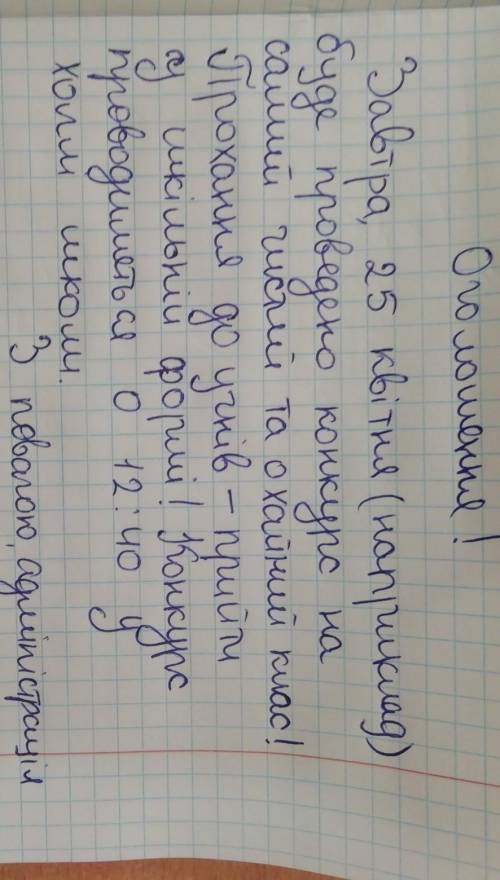 Оголошення!
Завтра, 25 квітня (наприклад)
буде проведено конкурс на
самий чистий та охайний клас!
Прохання до учнів – прийти
у шкільній формі! Конкурс
проводиметься о 12:40 у
холлі школи.
З повагою, адміністрація